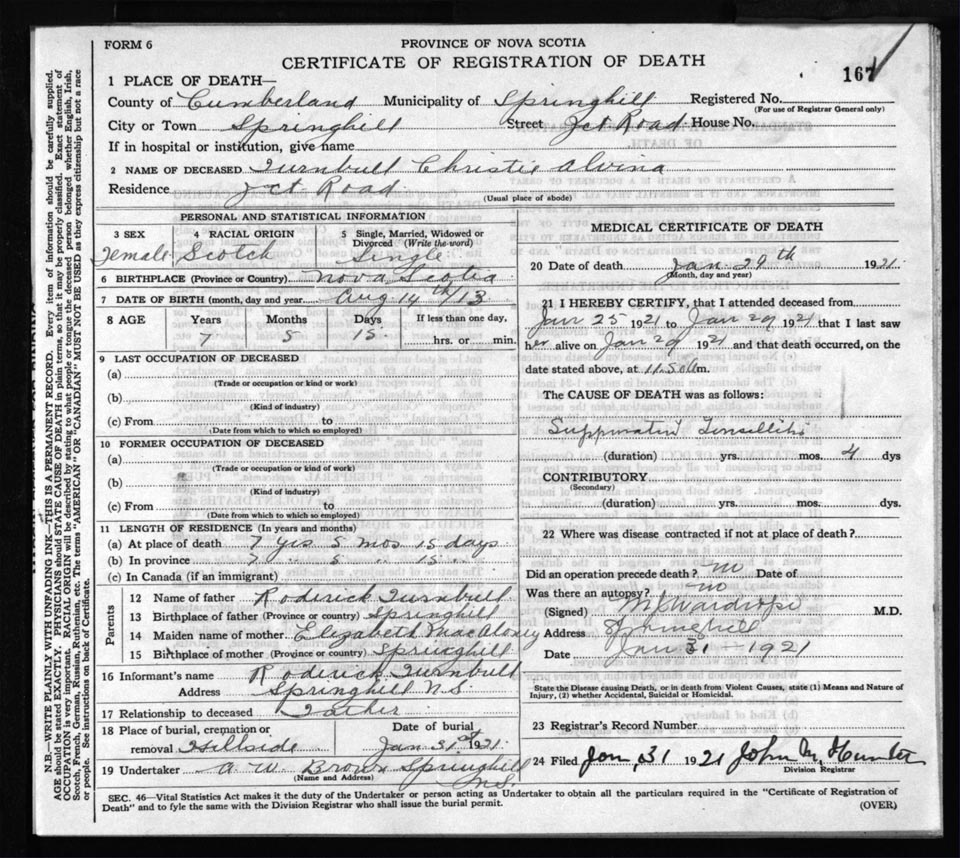 FORM 6
PROVINCE OF NOVA SCOTIA
CERTIFICATE OF REGISTRATION OF DEATH
167
1 PLACE OF DEATH—
County of Cumberland Municipality of Springhill Registered No.
(For use of Registrar General only)
City or Town Springhill Street Jct Road House No.
If in hospital or institution, give name
2 NAME OF DECEASED Turnbull Christie Alvina
Residence Jct Road
(Usual place of abode)
PERSONAL AND STATISTICAL INFORMATION
3 SEX 4 RACIAL ORIGIN 5 Single, Married, Widowed or Divorced (Write the word)
Female Scotch Single
6 BIRTHPLACE (Province or Country) Nova Scotia
7 DATE OF BIRTH (month, day and year) Aug 14th/13
8 AGE Years Months Days If less than one day,
7 5 15 hrs. or min.
9 LAST OCCUPATION OF DECEASED
(a)
(Trade or occupation or kind or work)
(b)
(Kind of industry)
(c) From to
(Date from which to which so employed)
10 FORMER OCCUPATION OF DECEASED
(a)
(Trade or occupation or kind of work)
(b)
(Kind of industry)
(c) From to
(Date from which to which so employed)
11 LENGTH OF RESIDENCE (In years and months)
(a) At place of death 7 yrs 5 mos 15 days
(b) In province 7 " 5 " 15 "
(c) In Canada (if an immigrant)
Parents
12 Name of father Roderick Turnbull
13 Birthplace of father (Province or country) Springhill
14 Maiden name of mother Elizabeth MacAloney
15 Birthplace of mother (Province or country) Springhill
16 Informant's name Roderick Turnbull
Address Springhill N.S.
17 Relationship to deceased Father
18 Place of burial, cremation or removal Hillside Date of burial Jan. 31st 1921.
19 Undertaker A. W. Brown Springhill N.S.
(Name and Address)
MEDICAL CERTIFICATE OF DEATH
20 Date of death Jan. 29th 1921
(Month, day and year)
21 I HEREBY CERTIFY, that I attended deceased from
Jan 25 1921 to Jan 29 1921 that I last saw
her alive on Jan 29 1921 and that death occurred, on the
date stated above, at m.
The CAUSE OF DEATH was as follows:
Tonsillitis
(duration) yrs. mos. 4 dys
CONTRIBUTORY
(Secondary)
(duration) yrs. mos. dys.
22 Where was disease contracted if not at place of death?
Did an operation precede death? no Date of
Was there an autopsy? no
(Signed) M.D.
Address Springhill
Date Jan 31 - 1921
State the Disease causing Death, or in death from Violent Causes, state (1) Means and Nature of
Injury, (2) whether Accidental, Suicidal or Homicidal.
23 Registrar's Record Number
24 Filed Jan, 31 1921 John M. Hunter
Division Registrar
SEC. 46—Vital Statistics Act makes it the duty of the Undertaker or person acting as Undertaker to obtain all the particulars required in the "Certificate of Registration of
Death" and to fyle the same with the Division Registrar who shall issue the burial permit.
(OVER)
N.B.—WRITE PLAINLY WITH UNFADING INK—THIS IS A PERMANENT RECORD. Every item of information should be carefully supplied.
AGE should be stated EXACTLY. PHYSICIANS should STATE CAUSE OF DEATH in plain terms, so that it may be properly classified. Exact statement of
OCCUPATION is very important. RACIAL ORIGIN will be described by stating to what people or tongue the deceased person belonged whether English, Irish,
Scotch, French, German, Russian, Ruthenian, etc. The terms "AMERICAN" OR "CANADIAN" MUST NOT BE USED as they express citizenship but not a race
or people. See instructions on back of Certificate.